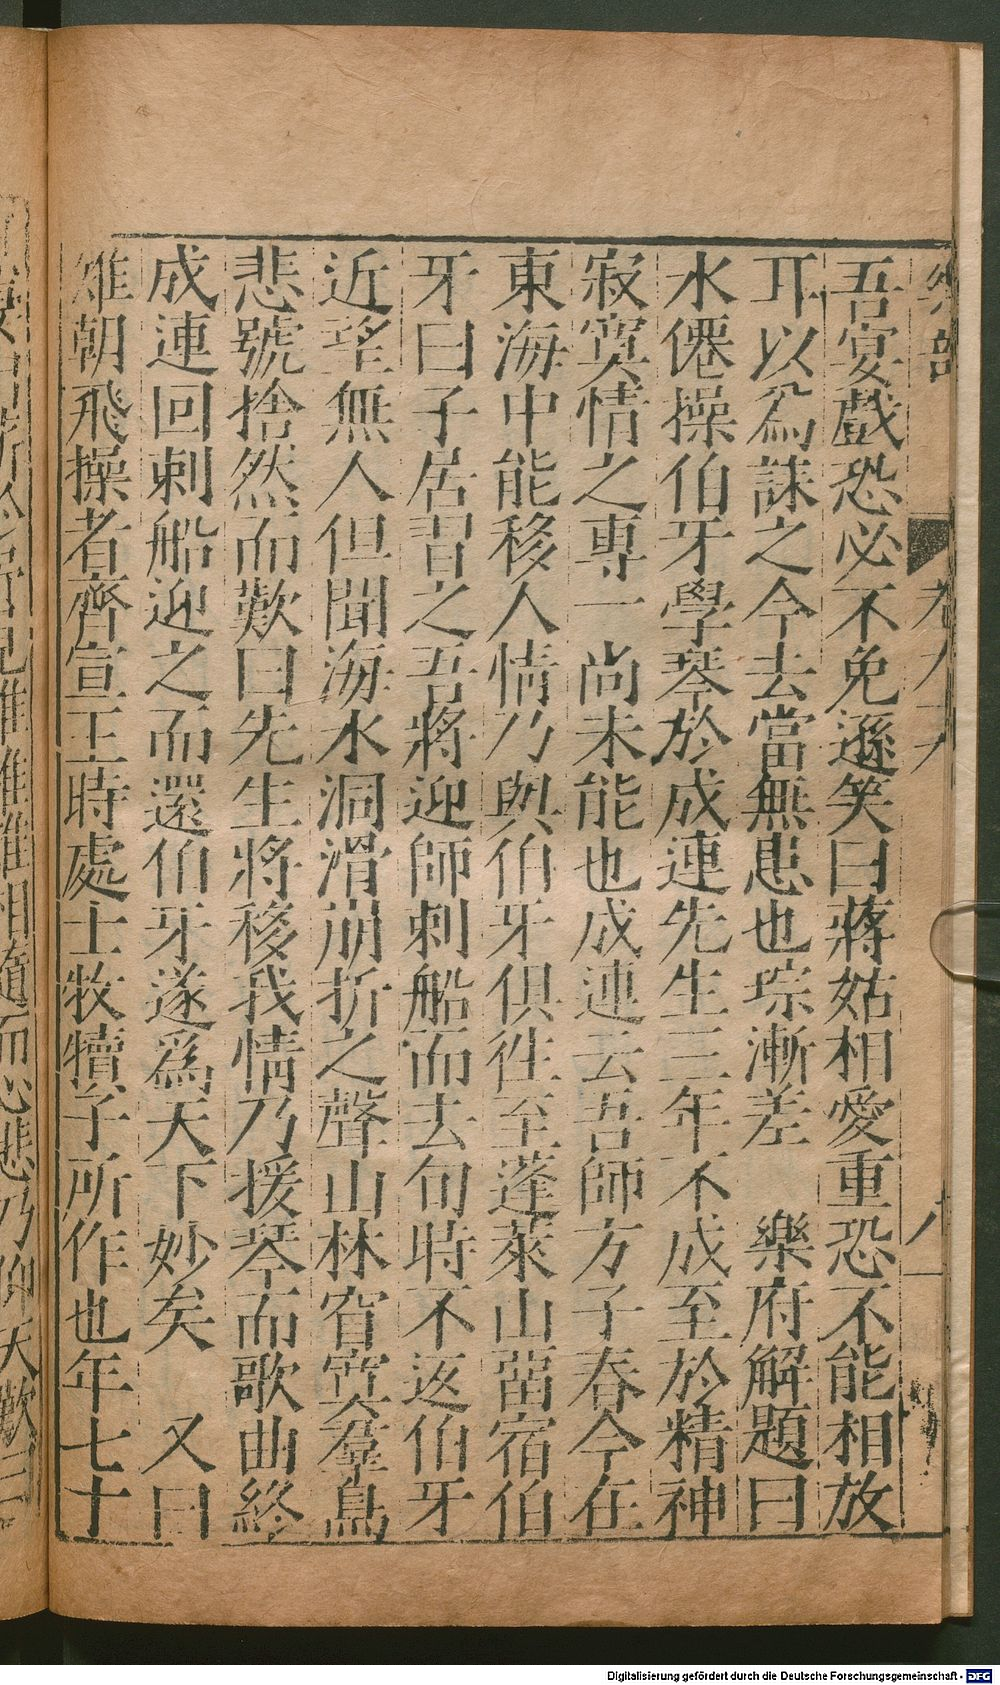 吾宴戲恐必不免遜笑曰蔣姑相愛重恐不能相放
耳以爲誅之今去當無患也琮漸差　樂府解題曰
水僊操伯牙學琴於成連先生三年不成至於精神
寂寞情之專一尚未能也成連云吾師方子春今在
東海中能移人情乃與伯牙俱徃至蓬萊山畱宿伯
牙曰子居習之吾將迎師刺船而去旬時不返伯牙
近望無人但聞海水洞滑崩折之聲山林窅寞羣鳥
悲號捨然而歎曰先生將移我情乃援琴而歌曲終
成連回刺船迎之而還伯牙遂爲天下妙矣　又曰
雉朝飛操者齊宣王時處士牧犢子所作也年七十
Digitalisierung gefördert durch die Deutsche Forschungsgemeinschaft - DFG